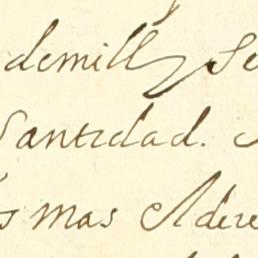 demill Se
Santidad.
s mas Adere